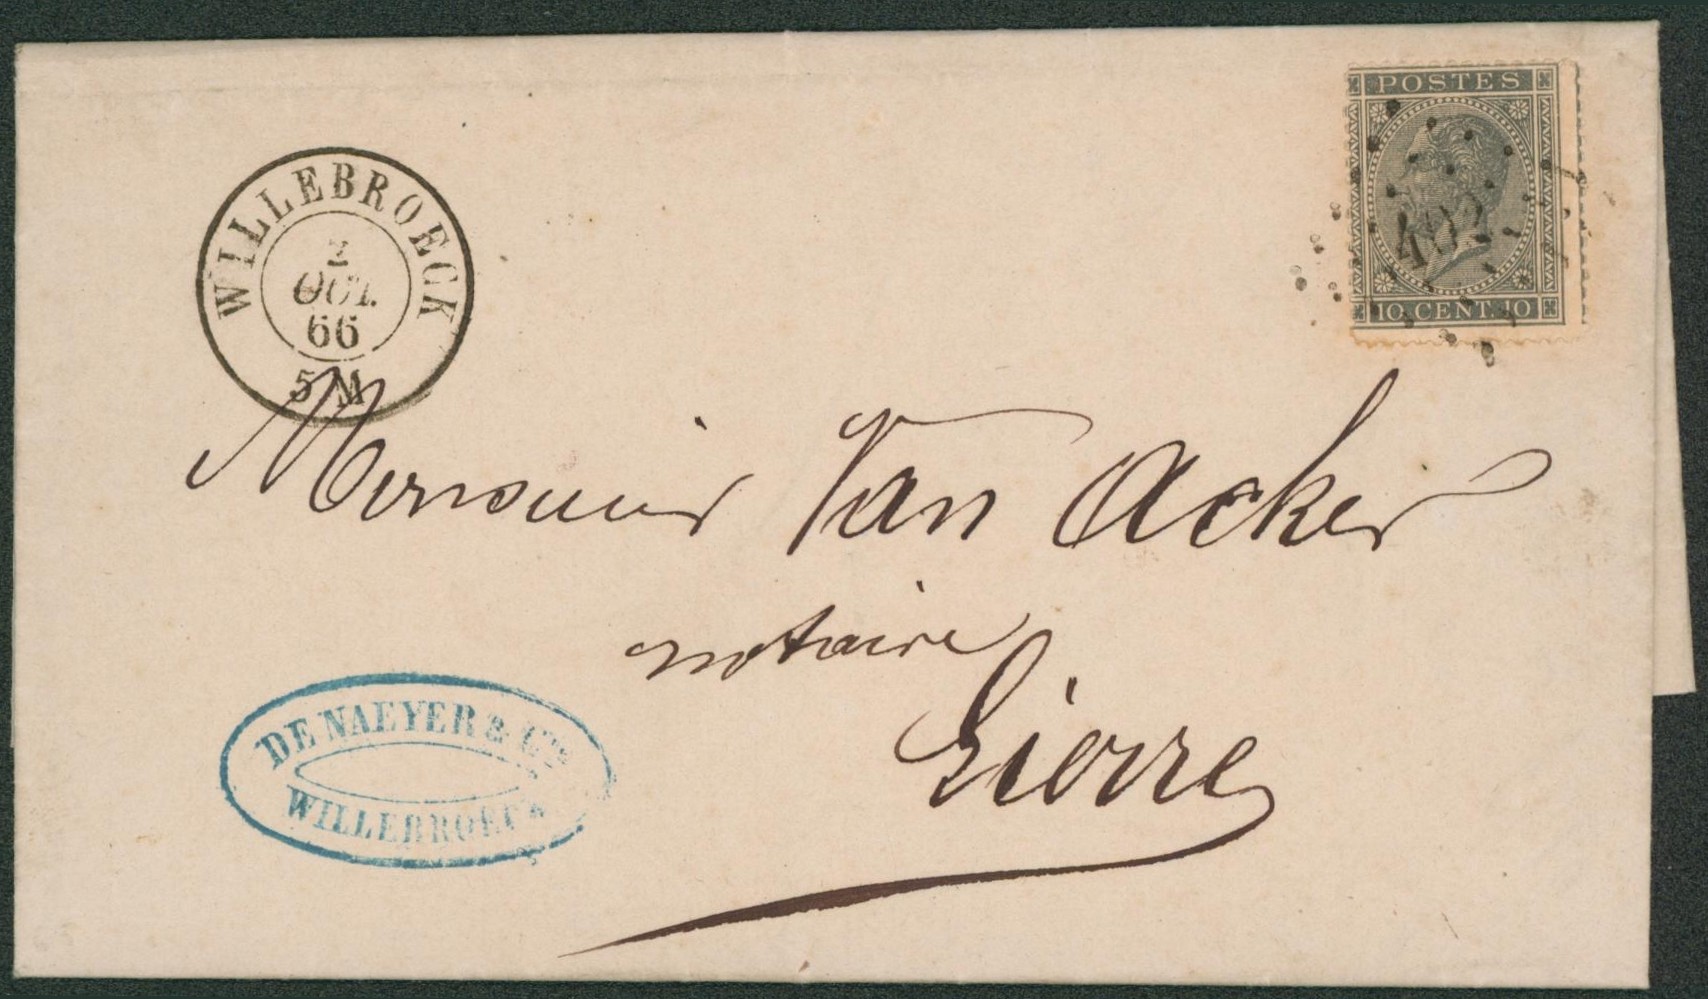 POSTES
402
10 CENT. 10
WILLEBROECK
OCT.
66
5 M
Monsieur Van Acker
notaire
Lierre
DE NAEYER & Cie
WILLEBROECK